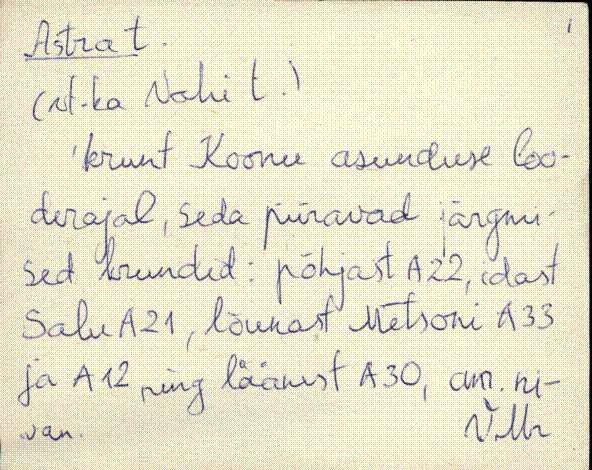 Astra t. 1
(vt. ka Vahi t.)
'krunt Koonu asunduse loo-
derajal, seda piiravad järgmi-
sed krundid: põhjast A22, idast
Salu A21, lõunast Metsoni A33
ja A12, ning läänest A30, an. ni-
van. VMr